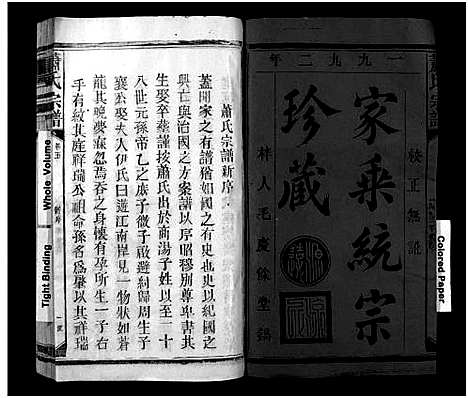 一九九二年
家乘統宗
珍藏
校正無訛
梓人毛慶餘堂鐫
Colored Paper
蕭氏宗譜
蕭氏宗譜新序
蓋聞家之有譜猶如國之有史也史以紀國之
興亡與治國之方案譜以序昭穆別尊卑書其
生娶卒葬謹按蕭氏出於商湯子姓至三十
八世元孫帝乙之庶子微子啟避紂歸周生子
襄公娶夫人伊氏曰遊江南岸見一物狀如蒼
龍其晚夢寐忽焉吞之身懷有孕所生一子右
手有紋其庭祥瑞公祖命孫名為肇以其祥瑞
蕭氏宗譜
卷五
新序
一號
Whole Volume
Tight Binding